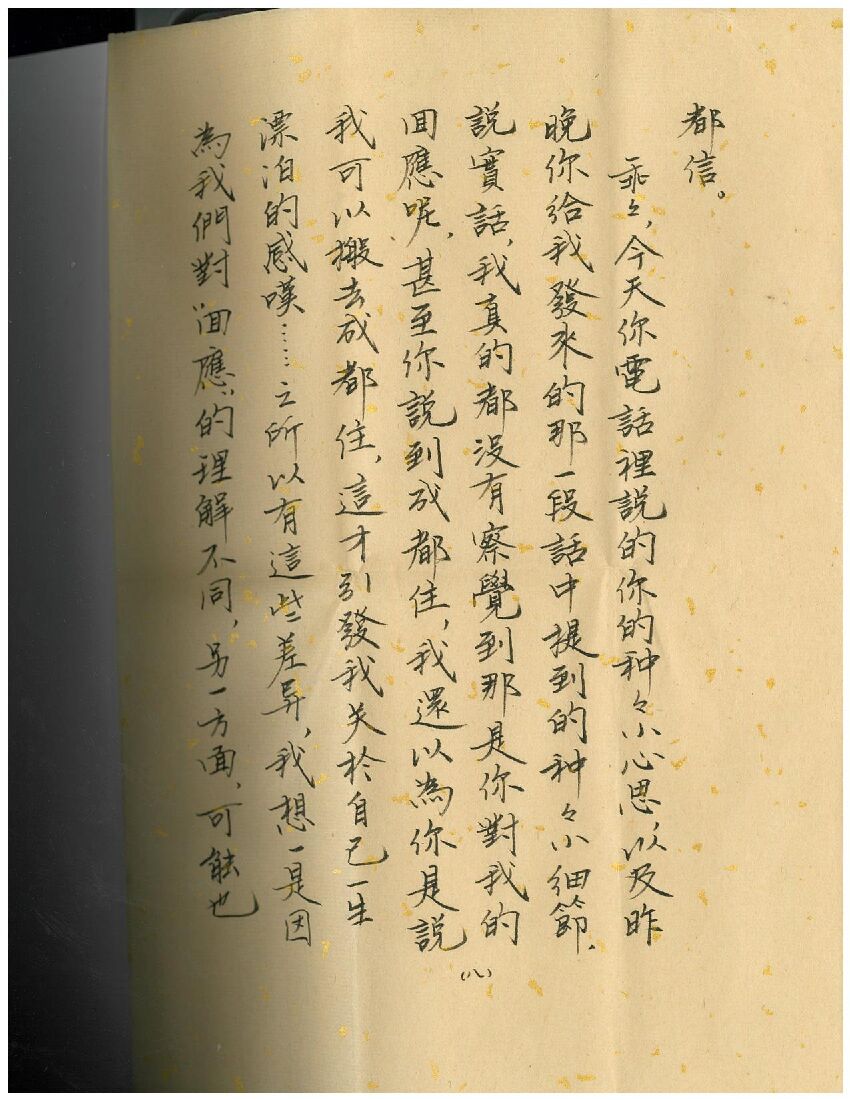 都信。
乖々，今天你電話裡説的你的种々小心思，以及昨
晚你给我發來的那一段話中提到的种々小细節，
説實話，我真的都没有察覺到那是你對我的
回應呢，甚至你説到成都住，我還以為你是説
我可以搬去成都住，這才引發我关於自己一生
漂泊的感嘆……之所以有這些差异，我想一是因
為我們對“回應”的理解不同，另一方面，可能也
（八）